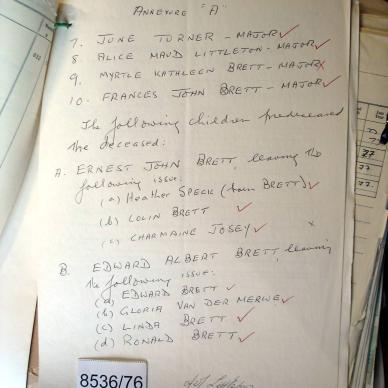 ANNEXURE "A"
7. JUNE TURNER - MAJOR
8. ALICE MAUD LITTLETON - MAJOR
9. MYRTLE KATHLEEN BRETT - MAJOR
10. FRANCES JOHN BRETT - MAJOR
The following children predeceased
the deceased:
A. ERNEST JOHN BRETT, leaving the
following issue:
(a) Heather SPECK (born BRETT)
(b) COLIN BRETT
(c) CHARMAINE JOSEY
B. EDWARD ALBERT BRETT, leaving
the following issue:
(a) EDWARD BRETT
(b) GLORIA VAN DER MERWE
(c) LINDA BRETT
(d) RONALD BRETT
8536/76